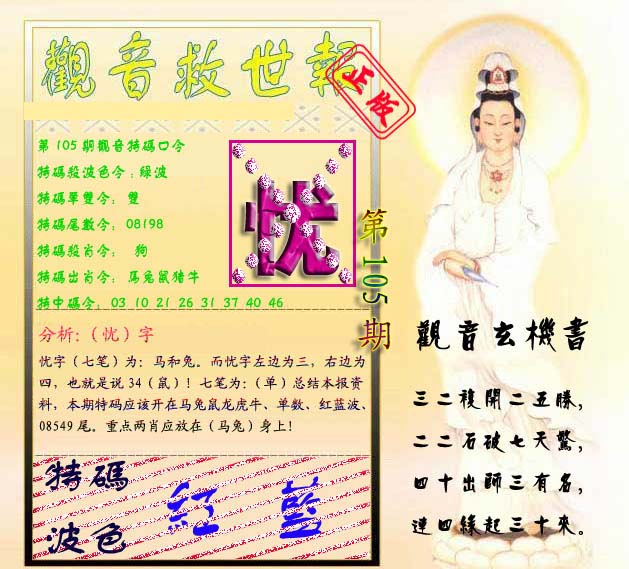 觀音救世報
正版
第105期觀音特碼口令
特碼殺波色令:綠波
特碼單雙令: 雙
特碼尾數令: 08198
特碼殺肖令: 狗
特碼出肖令: 馬兔鼠猪牛
特中碼令: 03 10 21 26 31 37 40 46
忧
第105期
分析:（忧）字
忧字（七笔）为：马和兔。而忧字左边为三，右边为
四，也就是说 34（鼠）！七笔为：（单）总结本报资
料，本期特码应该开在马兔鼠龙虎牛、单数、红蓝波、
08549 尾。重点两肖应放在（马兔）身上！
特碼
波色
紅 藍
觀音玄機書
三二複開二五勝，
二二石破七天驚，
四十出師三有名，
連四緣起三十來。